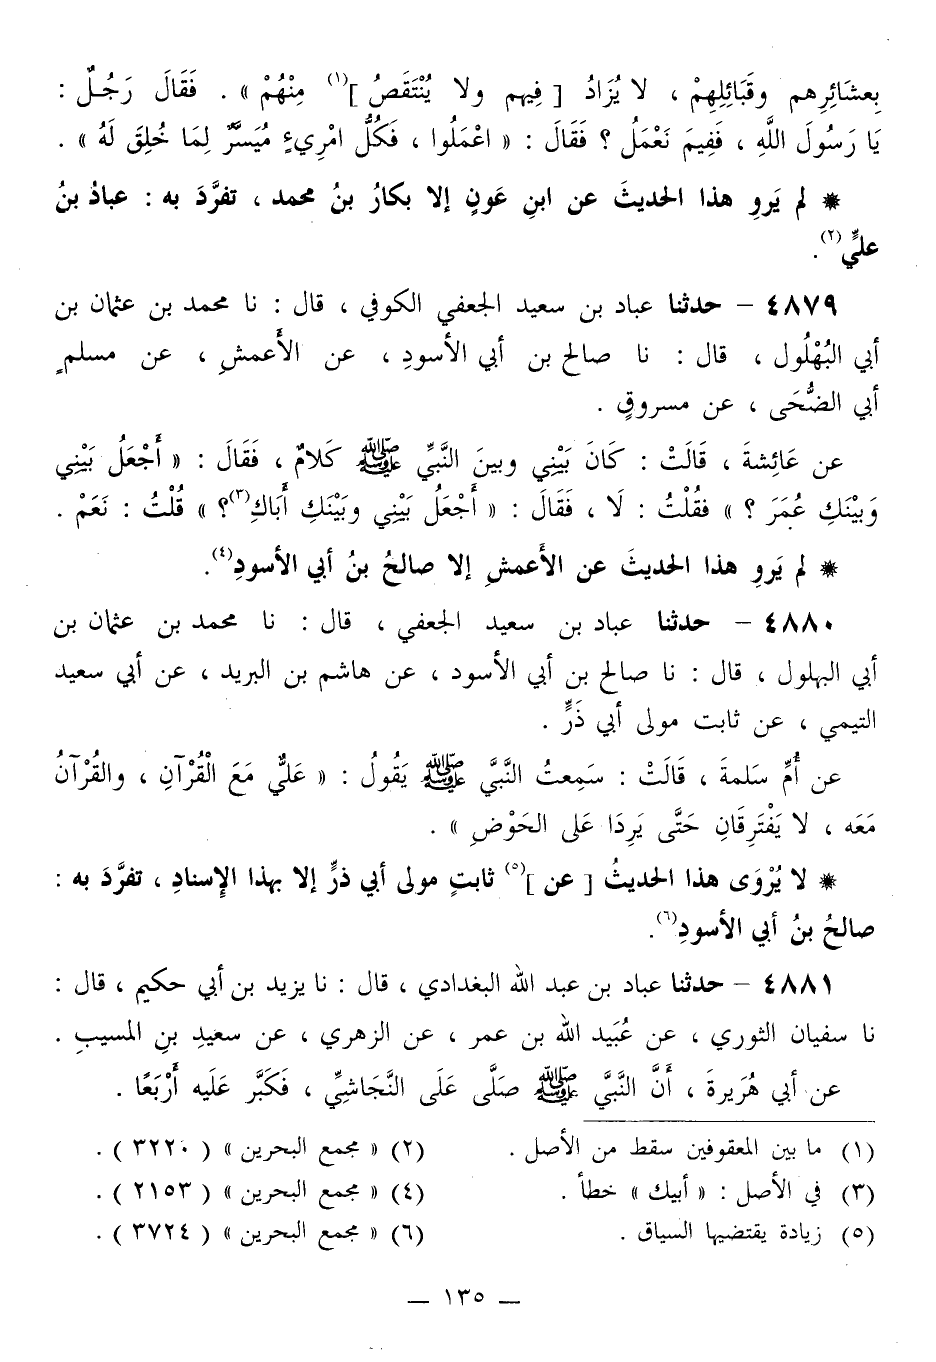 بِعشَائِرِهم وقَبَائِلِهِمْ ، لا يُزَادُ [ فِيهم ولا يُنْتَقَصُ ](١) مِنْهُمْ » . فَقَالَ رَجُلٌ :
يَا رَسُولَ اللَّهِ ، فَفِيمَ نَعْمَلُ ؟ فَقَالَ : « اعْمَلُوا ، فَكُلُّ امْرِيءٍ مُيَسَّرٌ لِمَا خُلِقَ لَهُ » .
* لم يَروِ هذا الحديثَ عن ابنِ عَونٍ إلا بكارُ بنُ محمد ، تفرَّدَ به : عبادُ بنُ
عليٍّ(٢).
٤٨٧٩ – حدثنا عباد بن سعيد الجعفي الكوفي ، قال : نا محمد بن عثمان بن
أبي البُهْلُول ، قال : نا صالح بن أبي الأسودِ ، عن الأَعمشِ ، عن مسلمٍ
أبي الضُّحَى ، عن مسروقٍ .
عن عَائِشةَ ، قَالَتْ : كَانَ بَيْنِي وبينَ النَّبِيِّ ﷺ كَلامٌ ، فَقَالَ : « أَجْعَلُ بَيْنِي
وَبَيْنَكِ عُمَرَ ؟ » فقُلْتُ : لَا ، فَقَالَ : « أَجْعَلُ بَيْنِي وبَيْنَكِ أَبَاكِ(٣)؟ » قُلْتُ : نَعَمْ .
* لم يَروِ هذا الحديثَ عن الأَعمشِ إلا صالحُ بنُ أبي الأسودِ(٤).
٤٨٨٠ – حدثنا عباد بن سعيد الجعفي ، قال : نا محمد بن عثمان بن
أبي البهلول ، قال : نا صالح بن أبي الأسود ، عن هاشم بن البريد ، عن أبي سعيد
التيمي ، عن ثابت مولى أبي ذَرٍّ .
عن أُمِّ سَلمةَ ، قَالَتْ : سَمِعتُ النَّبيَّ ﷺ يَقُولُ : « عَليٌّ مَعَ الْقُرْآنِ ، والقُرْآنُ
مَعَه ، لا يَفْتَرِقَانِ حَتَّى يَرِدَا عَلى الحَوْضِ » .
* لا يُرْوَى هذا الحديثُ [ عن ](٥) ثابتٍ مولى أبي ذرٍّ إلا بهذا الإسنادِ ، تفرَّدَ به :
صالحُ بنُ أبي الأسودِ(٦).
٤٨٨١ – حدثنا عباد بن عبد الله البغدادي ، قال : نا يزيد بن أبي حكيم ، قال :
نا سفيان الثوري ، عن عُبَيد الله بن عمر ، عن الزهري ، عن سعيدِ بنِ المسيبِ .
عن أبي هُرَيرةَ ، أَنَّ النَّبيَّ ﷺ صَلَّى عَلَى النَّجَاشِيِّ ، فَكَبَّر عَلَيه أَرْبَعًا .
(١) ما بين المعقوفين سقط من الأصل .
(٢) « مجمع البحرين » ( ٣٢٢٠ ) .
(٣) في الأصل : « أبيك » خطأ .
(٤) « مجمع البحرين » ( ٢١٥٣ ) .
(٥) زيادة يقتضيها السياق .
(٦) « مجمع البحرين » ( ٣٧٢٤ ) .
– ١٣٥ –